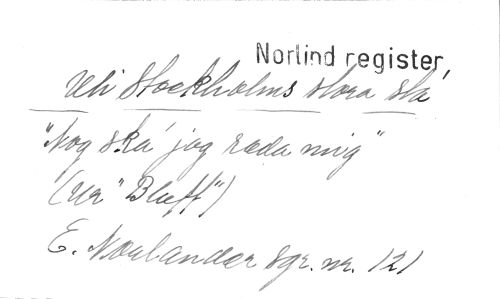 Norlind register
Uti Stockholms stora sta
"Nog ska' jag reda mig"
(ur "Bluff")
E. Norlander sgr. nr. 121